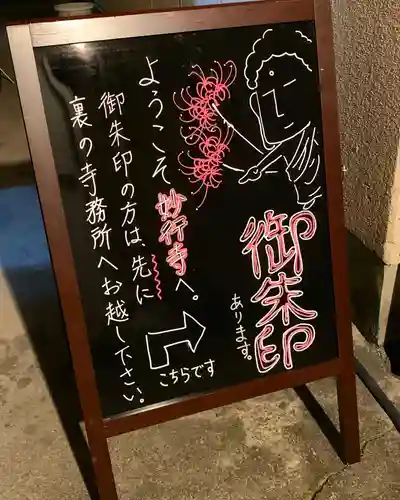 ようこそ妙行寺へ。
御朱印の方は、先に
裏の寺務所へお越し下さい。
こちらです
御朱印
あります。